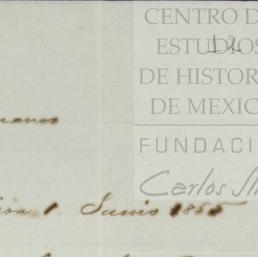 CENTRO D
ESTUDIOS
12
DE HISTOR
DE MEXIC
FUNDACI
Carlos Sli
Junio 1855